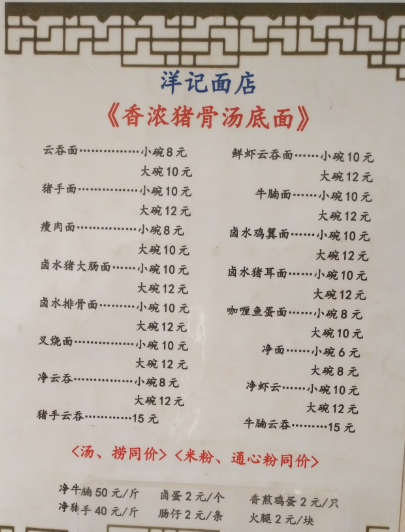 洋记面店
《香浓猪骨汤底面》
云吞面················小碗8元
大碗10元
猪手面···············小碗10元
大碗12元
瘦肉面···············小碗8元
大碗10元
卤水猪大肠面······小碗10元
大碗12元
卤水排骨面·········小碗10元
大碗12元
叉烧面···············小碗10元
大碗12元
净云吞···············小碗8元
大碗12元
猪手云吞············15元
鲜虾云吞面······小碗10元
大碗12元
牛腩面············小碗10元
大碗12元
卤水鸡翼面······小碗10元
大碗12元
卤水猪耳面······小碗10元
大碗12元
咖喱鱼蛋面······小碗8元
大碗10元
净面·······小碗6元
大碗8元
净虾云·····小碗10元
大碗12元
牛腩云吞·········15元
<汤、捞同价><米粉、通心粉同价>
净牛腩50元/斤 卤蛋2元/个 香煎鸡蛋2元/只
净猪手40元/斤 肠仔2元/条 火腿2元/块